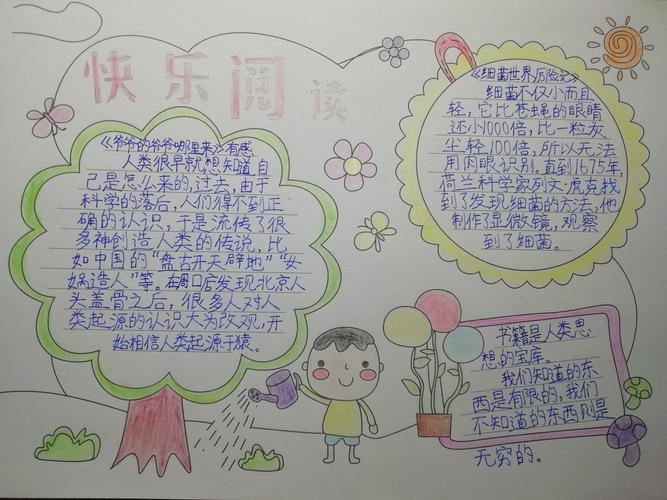 快乐阅读
《爷爷的爷爷哪里来》有感
人类很早就想知道自
己是怎么来的,过去,由于
科学的落后,人们得不到正
确的认识,于是流传了很
多神创造人类的传说,比
如中国的“盘古开天辟地”“女
娲造人”等。在周口店发现北京人
头盖骨之后,很多人对人
类起源的认识大为改观,开
始相信人类起源于猿。
《细菌世界历险记》
细菌不仅小而且
轻,它比苍蝇的眼睛
还小1000倍,比一粒灰
尘轻100倍,所以无法
用肉眼识别。直到1675年,
荷兰科学家列文·虎克找
到了发现细菌的方法,他
制作了显微镜,观察
到了细菌。
书籍是人类思
想的宝库。
我们知道的东
西是有限的,我们
不知道的东西则是
无穷的。